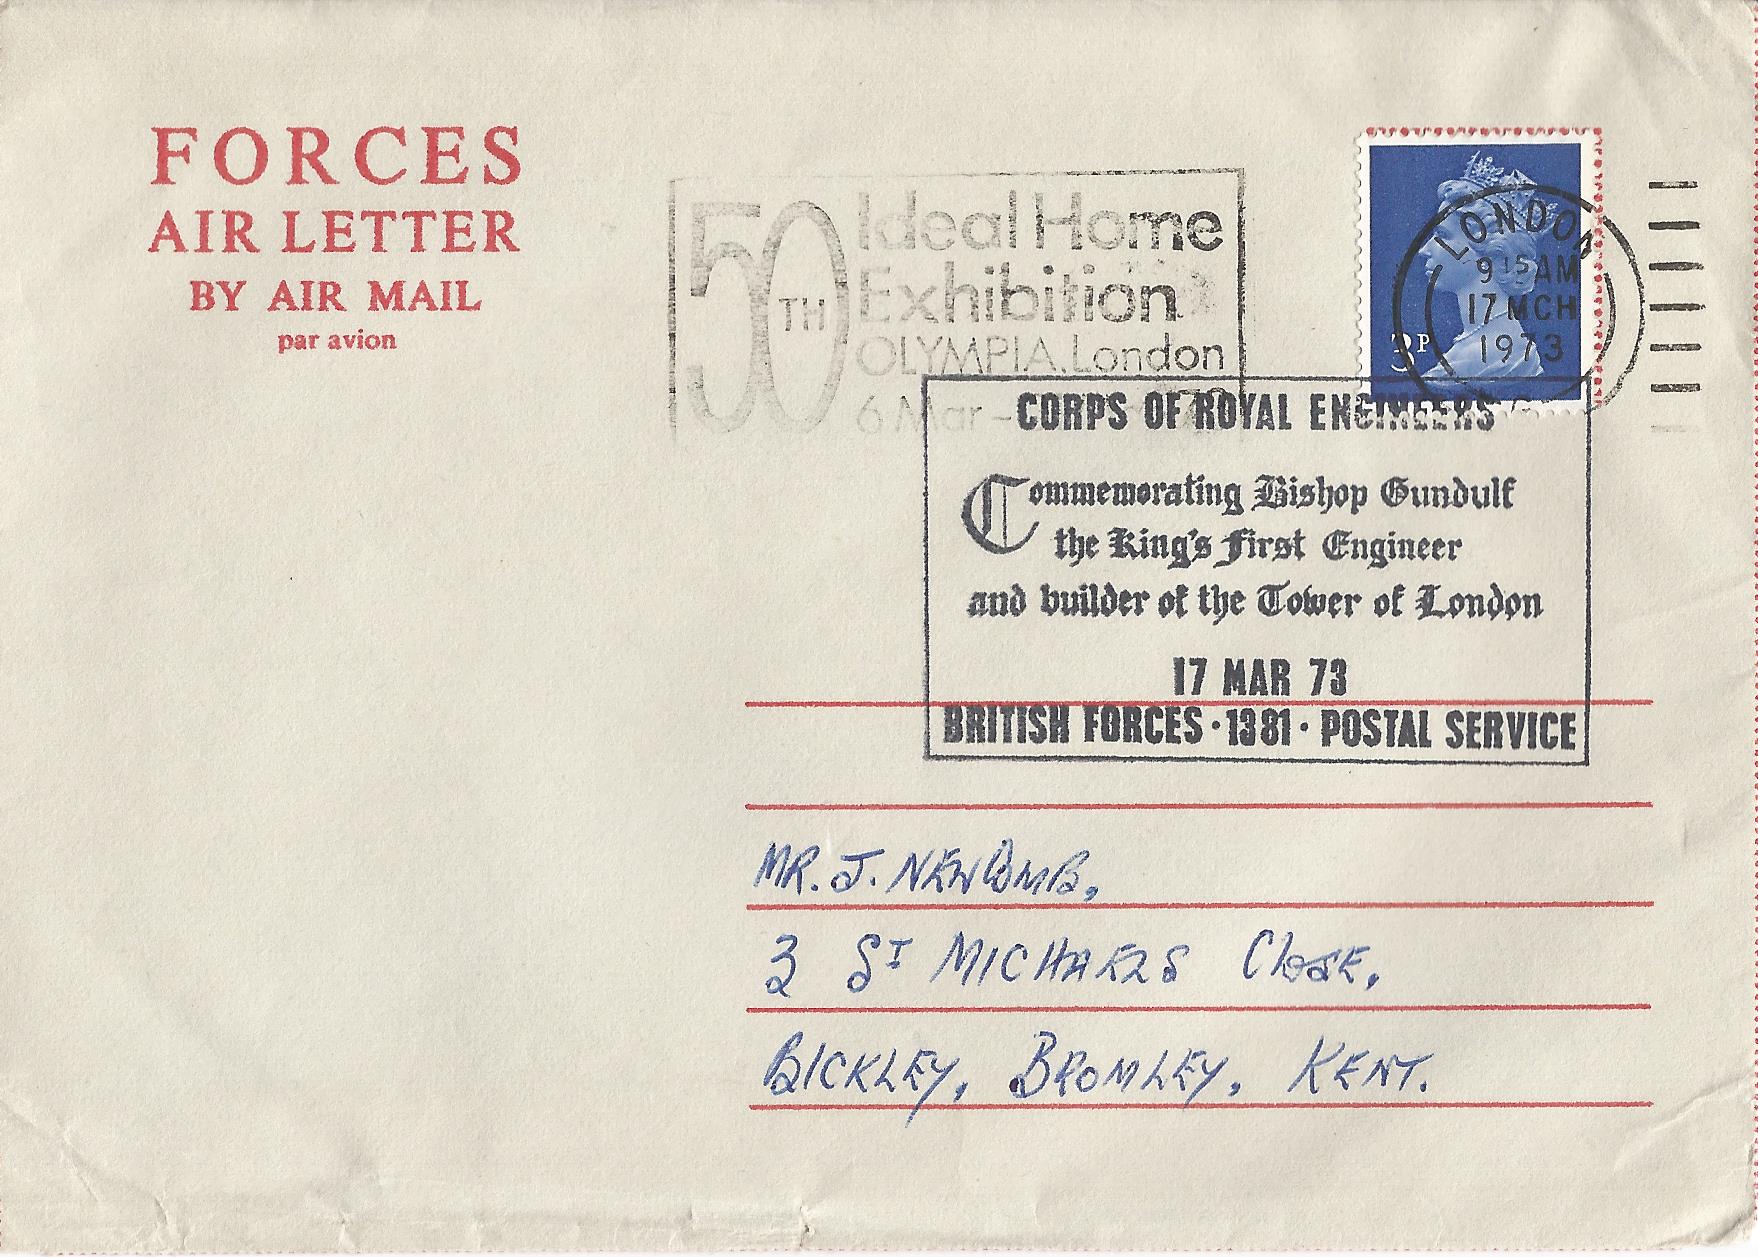 FORCES
AIR LETTER
BY AIR MAIL
par avion
50TH
Ideal Home
Exhibition
OLYMPIA. London
6 Mar -
LONDON
9 15 AM
17 MCH
1973
3P
CORPS OF ROYAL ENGINEERS
Commemorating Bishop Gundulf
the King's First Engineer
and builder of the Tower of London
17 MAR 73
BRITISH FORCES · 1381 · POSTAL SERVICE
MR. J. NEWCOMB,
3 ST MICHAELS CLOSE,
BICKLEY, BROMLEY, KENT.